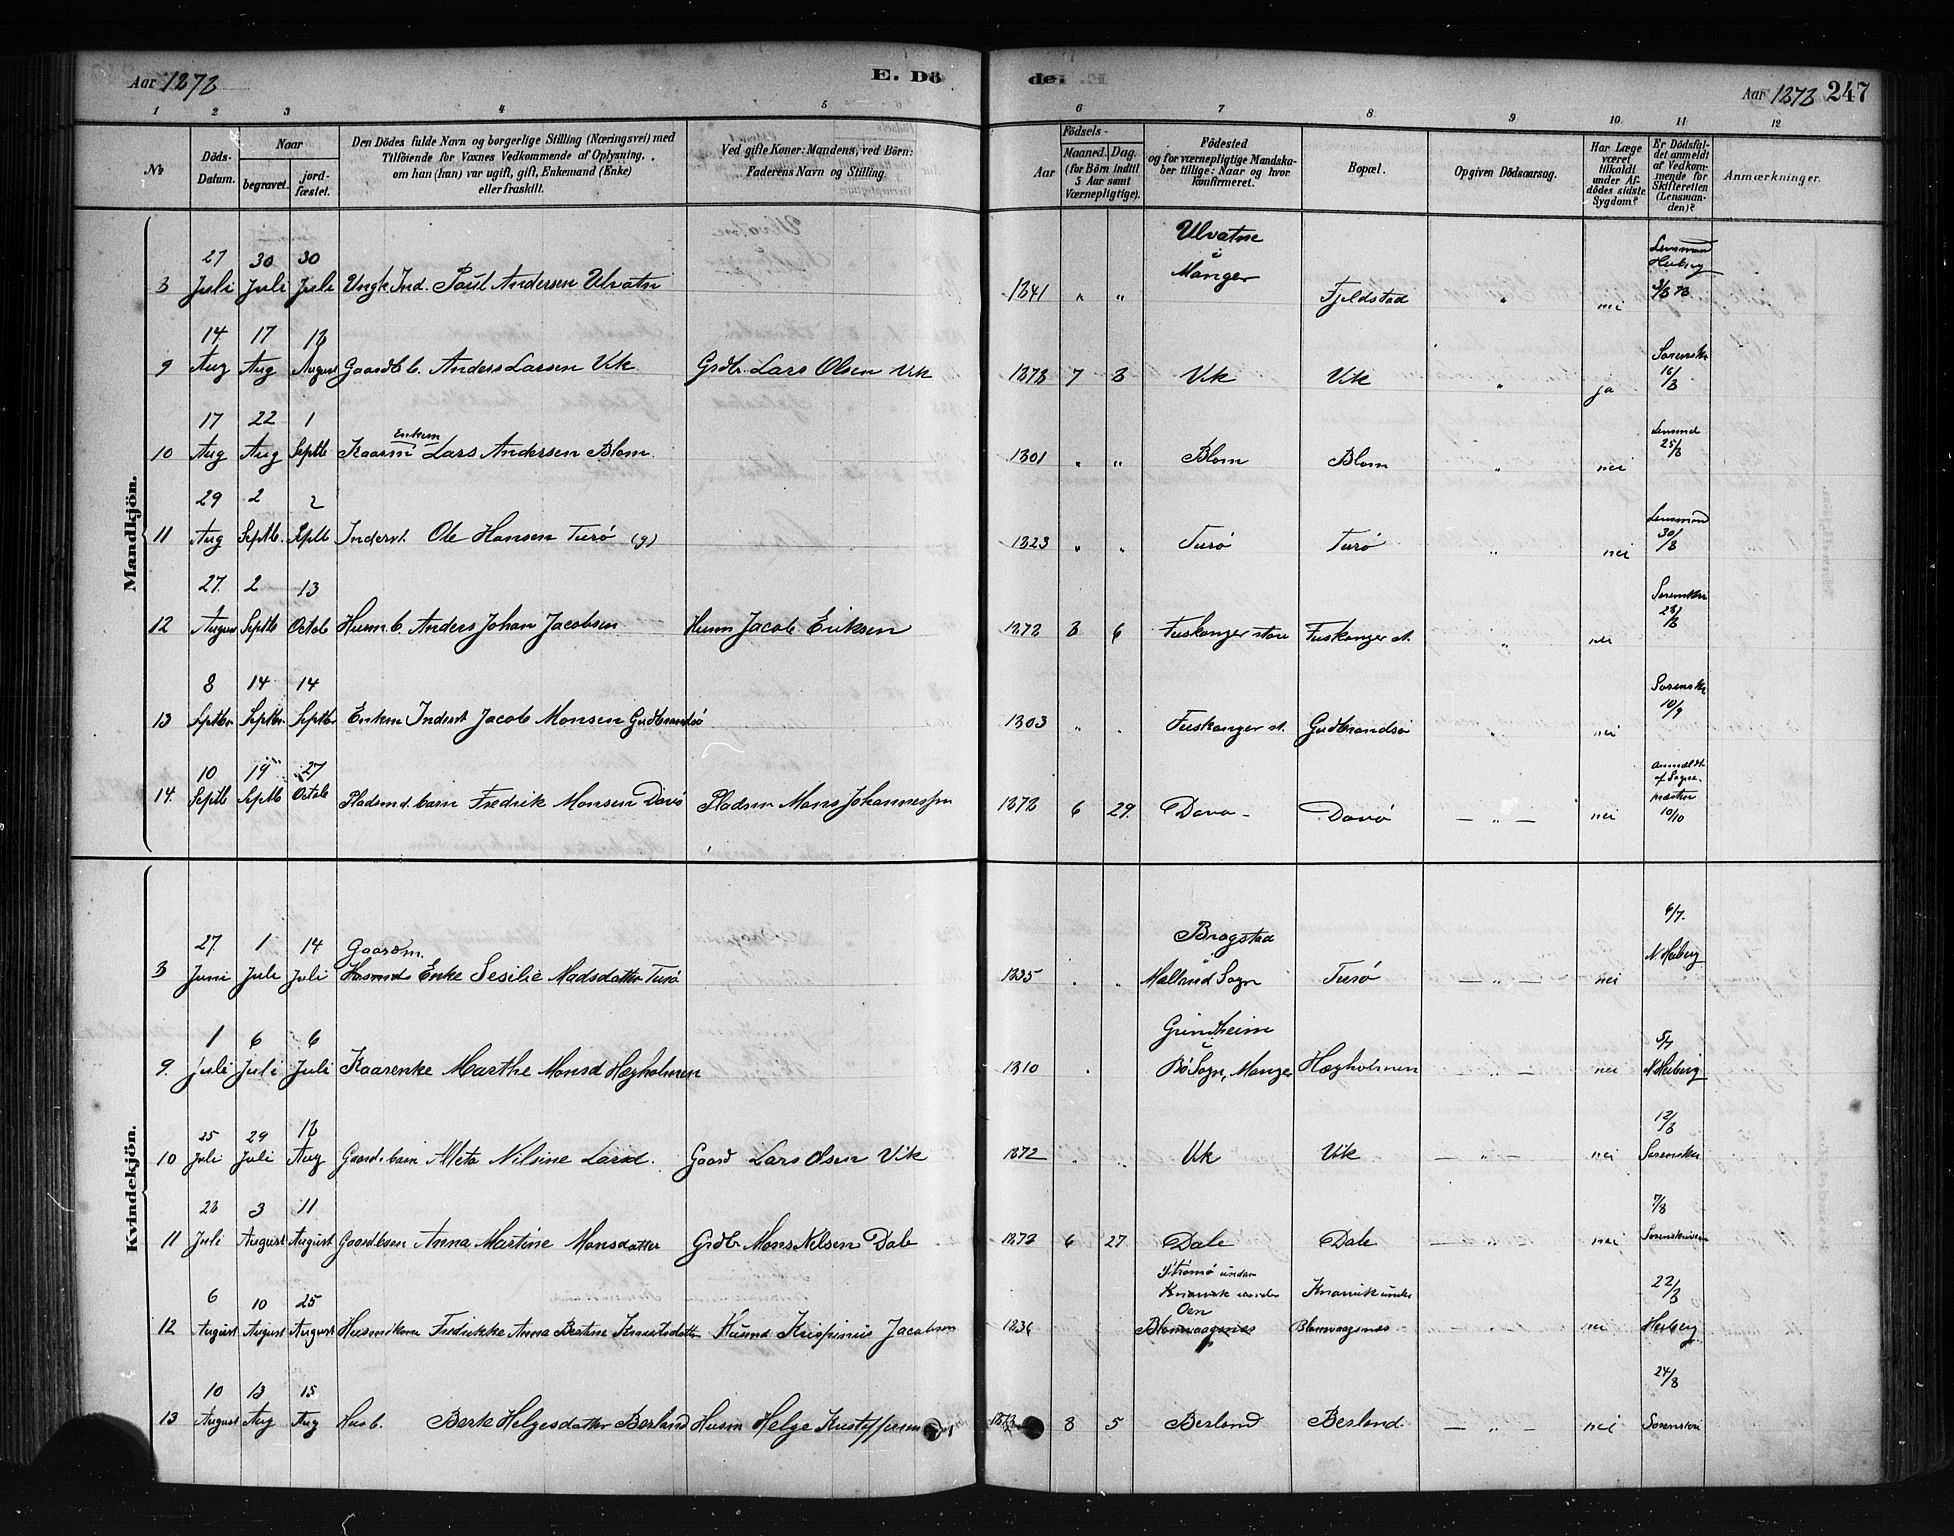 Aar 1878
E. Dö
den
Aar 1878 247
1 2 3 4 5 6 7 8 9 10 11 12
No
Döds-Datum.
Naar
begravet.
jord-fæstet.
Den Dödes fulde Navn og borgerlige Stilling (Næringsvei) med
Tilföiende for Voxnes Vedkommende af Oplysning,
om han (hun) var ugift, gift, Enkemand (Enke)
eller fraskilt.
Ved gifte Koner: Mandens, ved Börn:
Faderens Navn og Stilling.
Födsels-
Aar
Maaned. Dag.
(for Börn indtil
5 Aar samt
Værnepligtige).
Födested
og for værnepligtige Mandska-
ber tillige: Naar og hvor
konfirmeret.
Bopæl.
Opgiven Dödsaarsag.
Har Læge
været
tilkaldt
under Af-
dödes sidste
Sygdom?
Er Dödsfal-
det anmeldt
af Vedkom-
mende for
Skifteretten
(Lensman-
den)?
Anmærkninger.
Mandkjön.
8 27 Juli 30 Juli 30 Juli Ungk Ind. Poul Andersen Ulvatn 1841 " " Ulvatne i Manger Fjeldstad " nei Lensmand Heiberg 3/8 78
9 14 Aug 17 Aug 18 August Gaardb. b. Anders Larsen Vik Grdbr. Lars Olsen Vik 1878 7 8 Vik Vik " ja Sorenskr 16/8
10 17 Aug 22 Aug 1 Septb Kaarm Enkem Lars Andersen Blom 1801 " " Blom Blom " nei Lensmd 25/8
11 29 Aug 2 Septb. 2 Septb Inderst. Ole Hansen Turö (g) 1823 " " Turö Turö " nei Lensmand 30/8
12 27. August 2 Septb 13 Octob Husm. b. Anders Johan Jacobsen Husm Jacob Eriksen 1878 8 6 Fuskanger store Fuskanger st. " nei Sorenskr 28/8
13 8 Septbr 14 Septbr. 14 Septbr Enkem Inderst Jacob Monsen Gudbrandsö 1803 " " Fuskanger st. Gudbrandsö " nei Sorenskr 10/9
14. 10 Septb 19 Septb 27 Octob Pladsmd. barn Fredrik Monsen Davö Pladsm Mons Johannessen 1878 6 29. Davö Davö " nei anmeldt af Sogne-præsten 10/10
Kvindekjön.
8 27. Juni 1 Juli 14 Juli Gaardm. Enke Sesilie Madsdatter Turö 1835 " " Brogstad Sogn Turö " nei 6/7. N Heiberg
9. 1 Juli 6 Juli 6 Juli Kaarenke Marthe Monsd Hægholmen 1810 " Grindheim i Bö Sogn, Manger Hægholmen " nei 5/7 N Heiberg
10 25 Juli 29 Juli 18 Aug Gaard. barn Meta Nilsine Larsd. Gaard Lars Olsen Vik 1872 " " Vik Vik " nei 12/8 Sorenskr
11 28 Juli 3 August 11 August Gaardbarn Anna Martine Monsdatter Grdbr Mons Nilsen Dale 1878 6 27 Dale Dale " nei 7/8 Sorenskriveren
12 6 August 10 August 25 August Husmdkone Fredrikke Anna Bertine Knutsdatter Husmd Krispinus Jacobsen 1836 Strömö under Knarvik under Oen Blomvaagsnes Knarvik under Blomvaagsnes " nei 22/8 Heiberg
13 10 August 13 Aug 15 Aug Hus b. Berte Helgesdatter Berland Husm Helge Kristoffersen 1878 8 5 Berland Berland " nei 24/8 Sorenskri